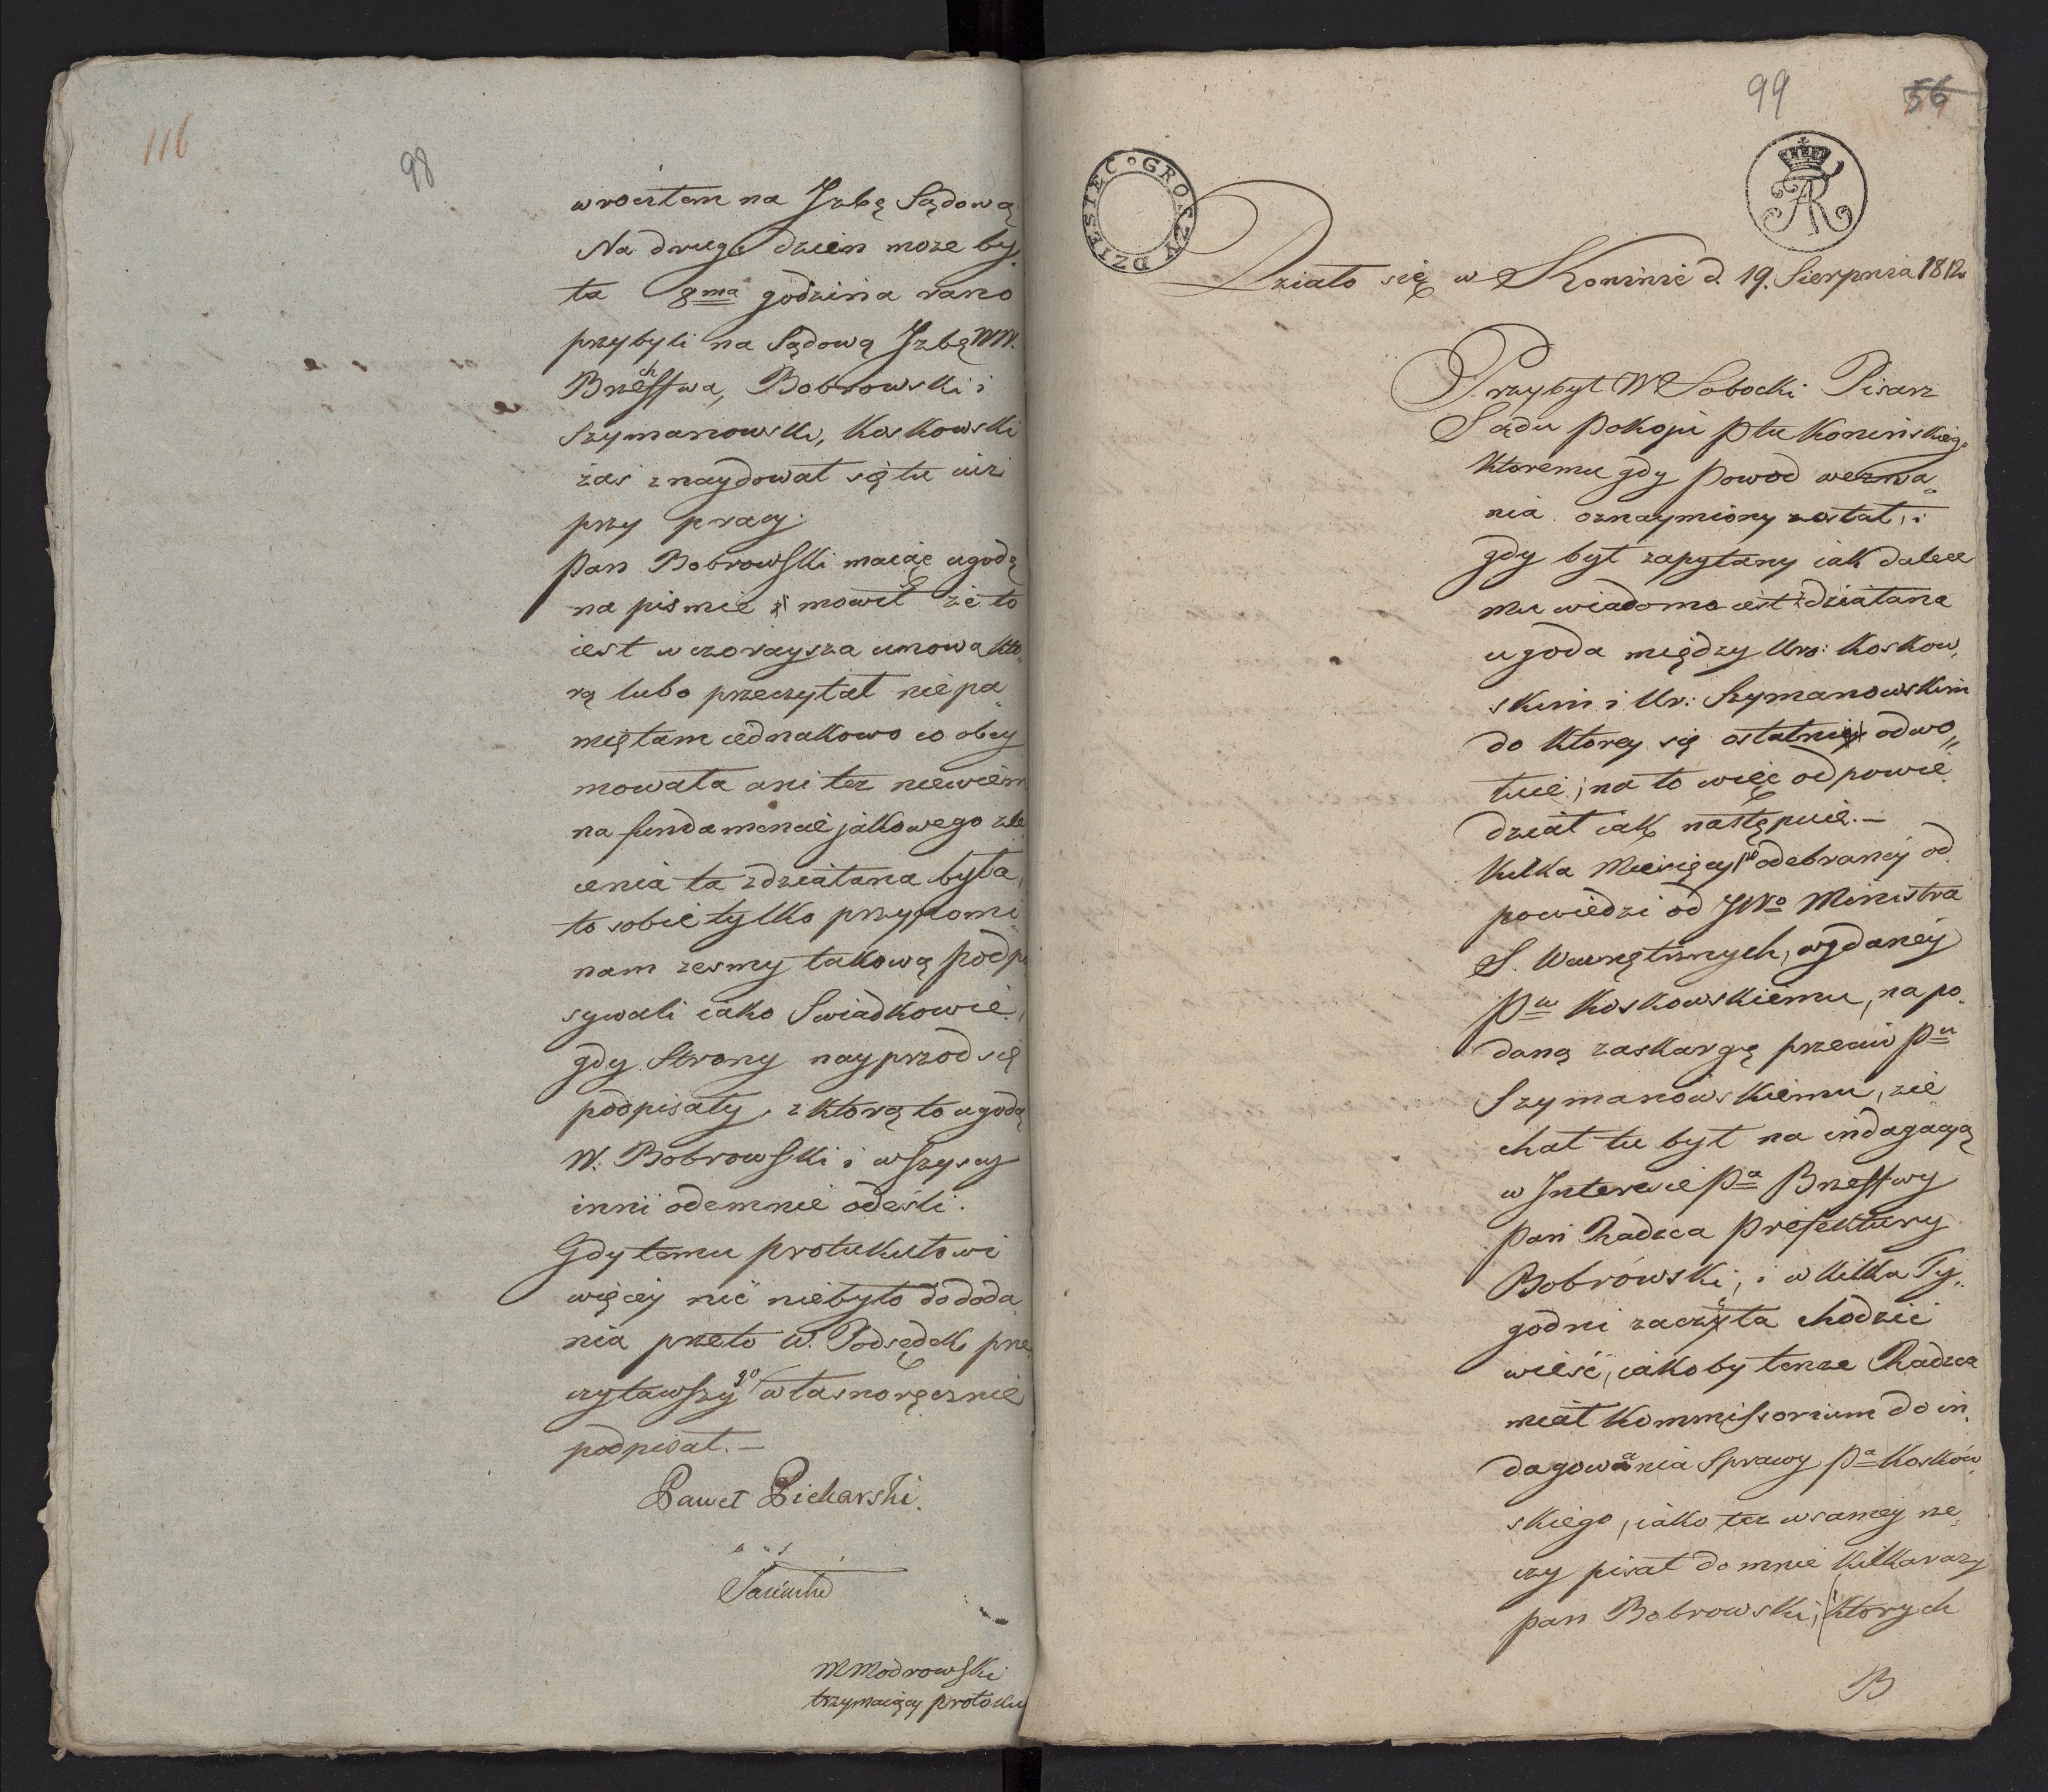 116
98
wrocitem na Jzbę Sądową
Na drugi dzien moze by„
ła 8ma godzina rano
przybyli na Sądową Jzbę WW.
Brzeſſwa, Bobrowski i
Szymanowski, Koskowski
zas znaydował się tu iuz
przy pracy.
Pan Bobrowski maiąc ugodę
na pismie mowił że to
iest wczoraysza umowa kto„
rą lubo przeczytał niepa„
miętam iednakowo co obey
mowała ani tez niewiem
na fundamencie jakowego zle
cenia ta zdziałana była,
to sobie tylko przypomi„
nam zesmy takową podpi
sywali iako Swiadkowie,
gdy Strony nayprzod się
podpisały, z ktorą to ugodą
W. Bobrowski i wszyscy
inni odemnie odeśli.
Gdy temu protukułowi
więcey nic niebyło do doda„
nia przeto W. Podsędek prze„
czytawszy go własnoręcznie
podpisał. —
Paweł Piekarski.
MModrowski
trzymaiący protoku
99
56
DZIESIEC GROSZY
FAR
Działo się w Koninie d. 19. Sierpnia 1812
Przybył W Sobocki Pisarz
Sądu Pokoju Ptu Konińskiego
ktoremu gdy powod wezwa„
nia oznaymiony został, i
gdy był zapytany iak dalece
mu wiadoma iest zdziałana
ugoda między Uro: Koskow„
skim i Ur: Szymanowskim
do ktorey się ostatni odwo„
łuie, na to więc odpowie„
dział iak następuie. —
Kilka Miesięcy po odebraney od
powiedzi od JWo Ministra
S. Wewnętrznych, wydaney
Pu Koskowskiemu, na po„
daną zaskargę przeciw Pu
Szymanowskiemu, zie
chał tu był na indagacyą
w Interesie Pa Brzeſſwy
Pan Radzca Prefektury
Bobrowski, i w kilka Ty„
godni zaczęła chodzic
wieść, iakoby tenze Radzca
miał Kommiſsorium do in„
dagowania Sprawy Pa Koskow„
skiego, iako tez w samey rze„
czy pisał do mnie kilka razy
pan Bobrowski, ktorych
B